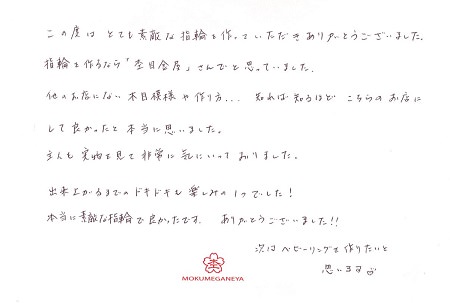 この度は とても素敵な指輪を作っていただきありがとうございました。
指輪を作るなら「杢目金屋」さんでと思っていました。
他のお店にない木目模様や作り方... 知れば知るほど こちらのお店に
して良かったと本当に思いました。
主人も実物を見て非常に気にいっておりました。
出来上がるまでのドキドキも楽しみの1つでした!
本当に素敵な指輪で良かったです。 ありがとうございました!!
次はベビーリングを作りたいと
思います
MOKUMEGANEYA